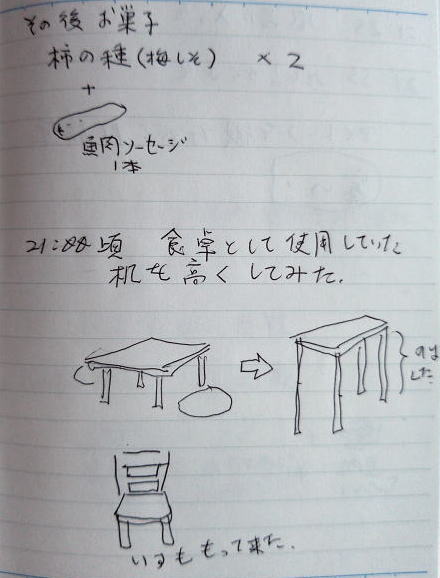 その後 お菓子
柿の種(梅しそ) × 2
+
魚肉ソーセージ
1本
頃 食卓として使用していた
机を高くしてみた.
のば
した
いすももって来た.